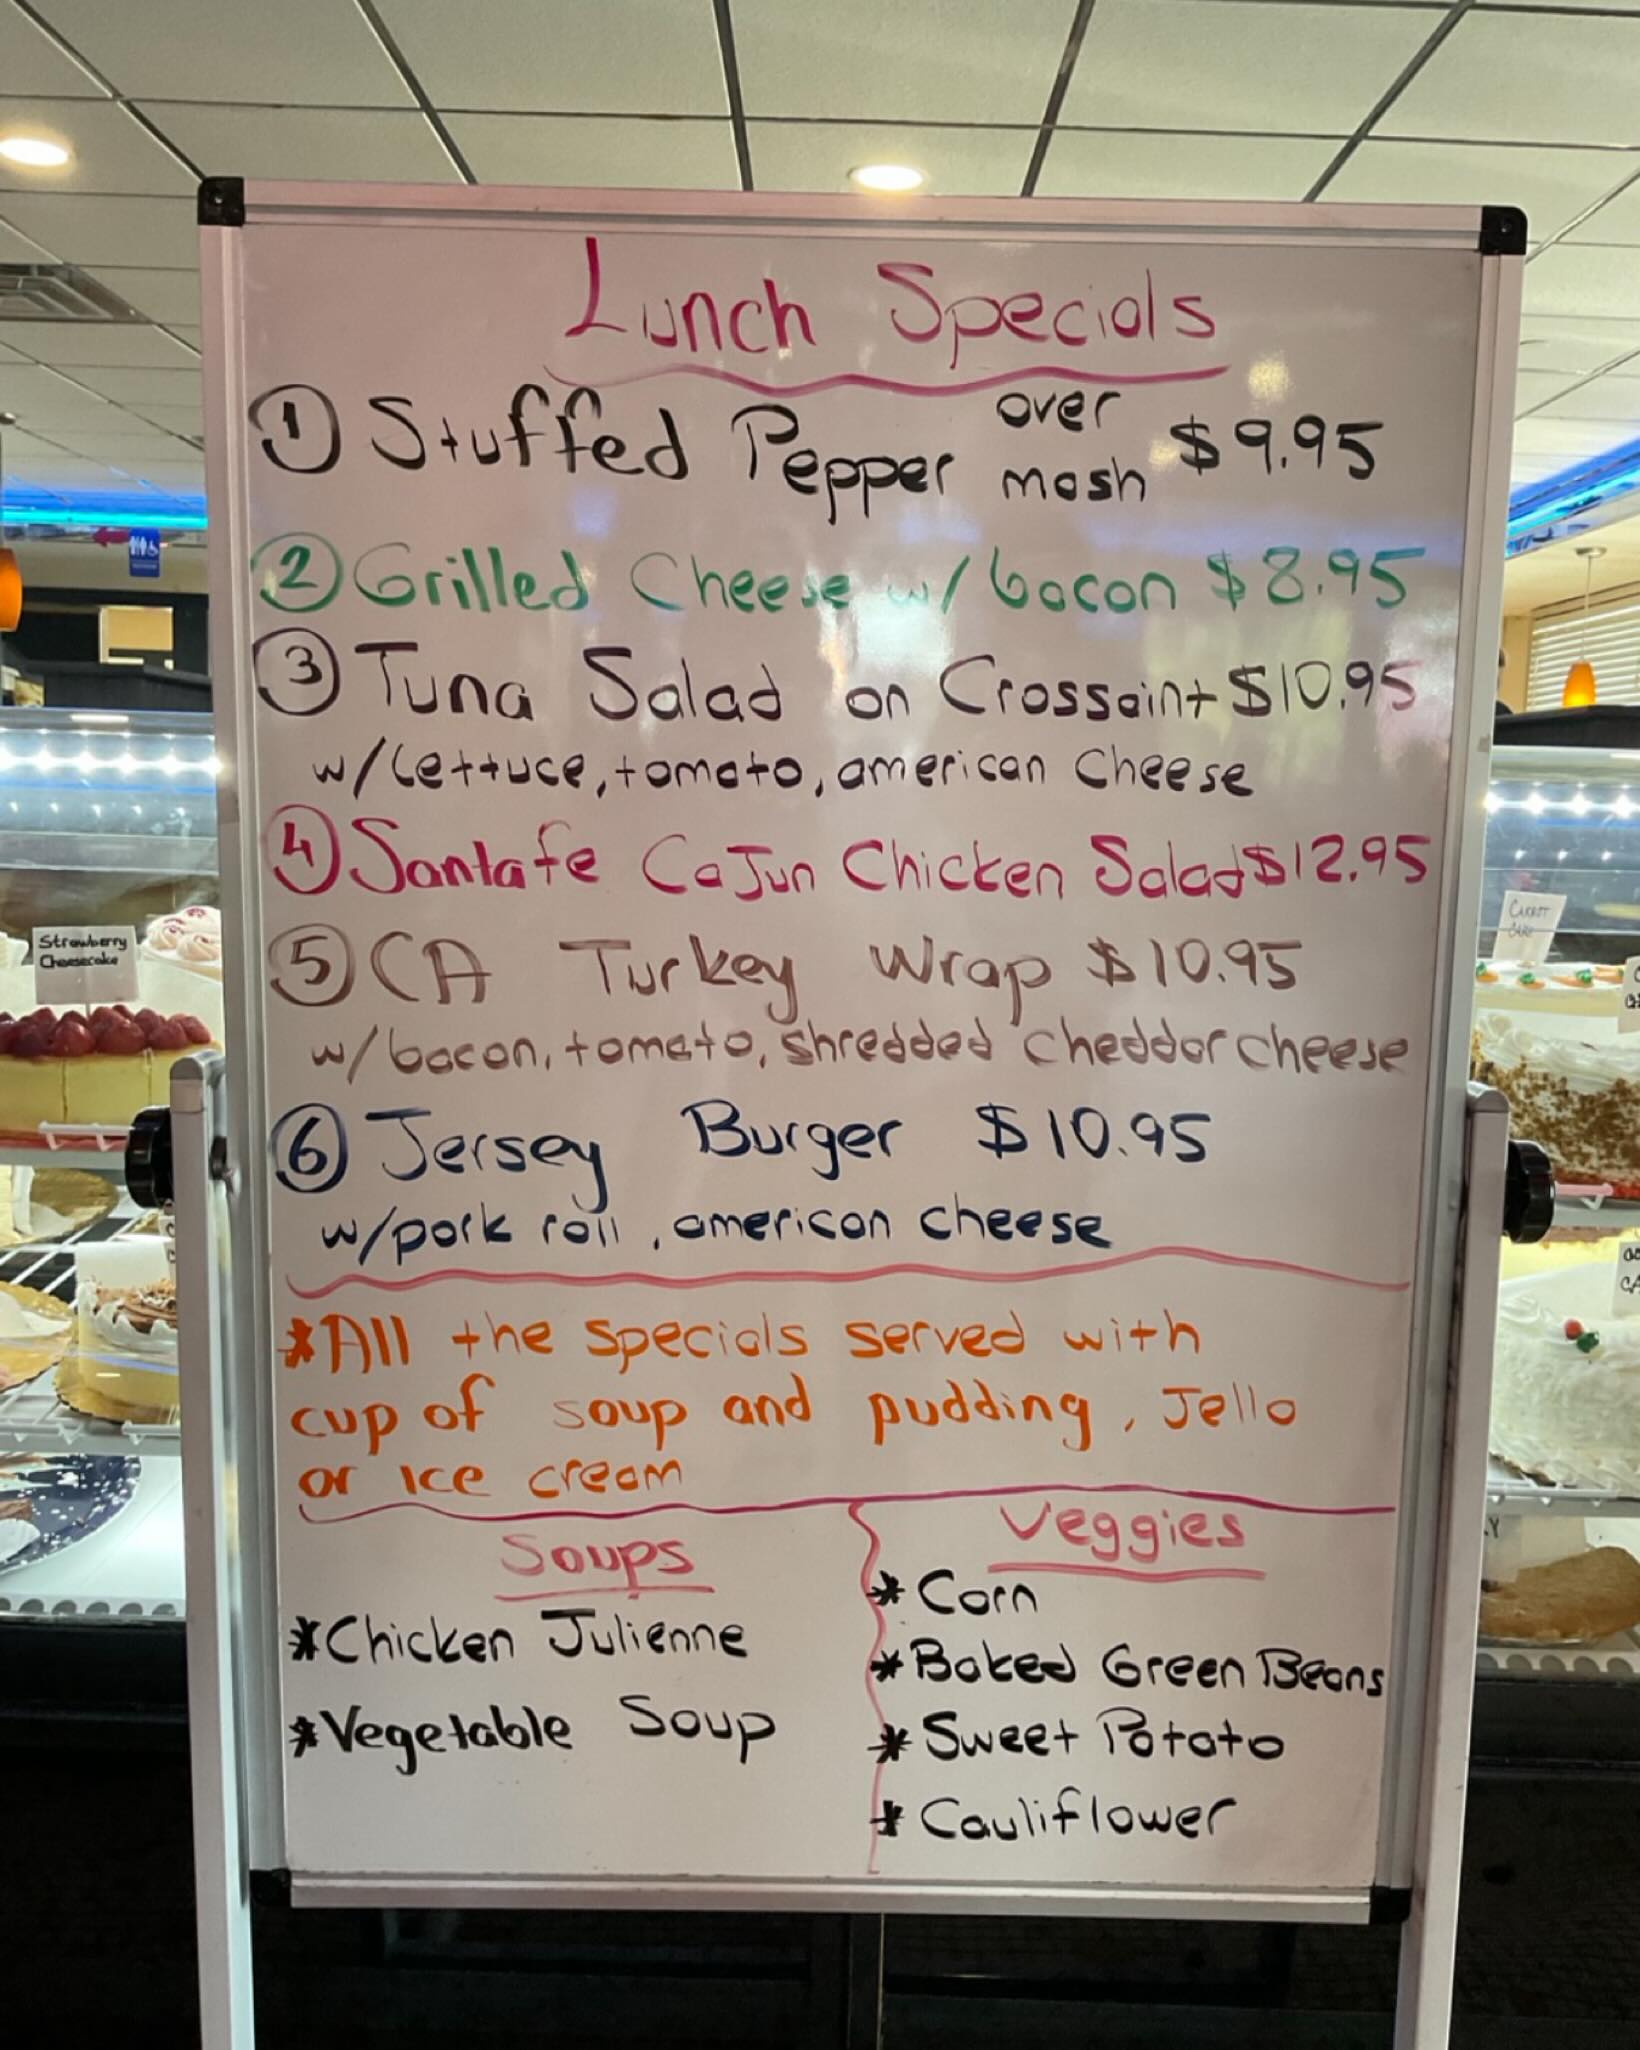 Lunch Specials
① Stuffed Pepper over mash $9.95
② Grilled Cheese w/ bacon $8.95
③ Tuna Salad on Crossaint $10.95
w/lettuce, tomato, american cheese
④ Santa fe CaJun Chicken Salad $12.95
⑤ CA Turkey Wrap $10.95
w/bacon, tomato, shredded cheddar cheese
⑥ Jersey Burger $10.95
w/pork roll, american cheese
*All the specials served with
cup of soup and pudding, Jello
or Ice cream
Soups
*Chicken Julienne
*Vegetable Soup
Veggies
*Corn
*Baked Green Beans
*Sweet Potato
*Cauliflower
Strawberry
Cheesecake
CARROT
CAKE